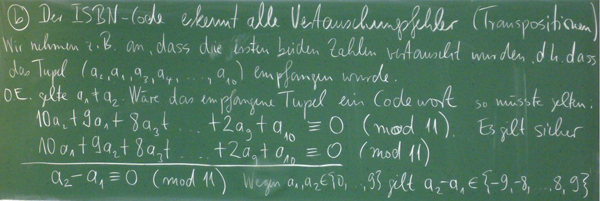 (b) Der ISBN-Code erkennt alle Vertauschungsfehler (Transpositionen)
Wir nehmen z.B. an, dass die ersten beiden Zahlen vertauscht wurden, d.h. dass
das Tupel (a₂, a₁, a₃, a₄, ..., a₁₀) empfangen wurde.
OE. gelte a₁ ≠ a₂. Wäre das empfangene Tupel ein Codewort so müsste gelten:
10a₂ + 9a₁ + 8a₃ + ... + 2a₉ + a₁₀ ≡ 0 (mod 11). Es gilt sicher
10a₁ + 9a₂ + 8a₃ + ... + 2a₉ + a₁₀ ≡ 0 (mod 11)
a₂ - a₁ ≡ 0 (mod 11) Wegen a₁, a₂ ∈ {0, ..., 9} gilt a₂ - a₁ ∈ {-9, -8, ... 8, 9}